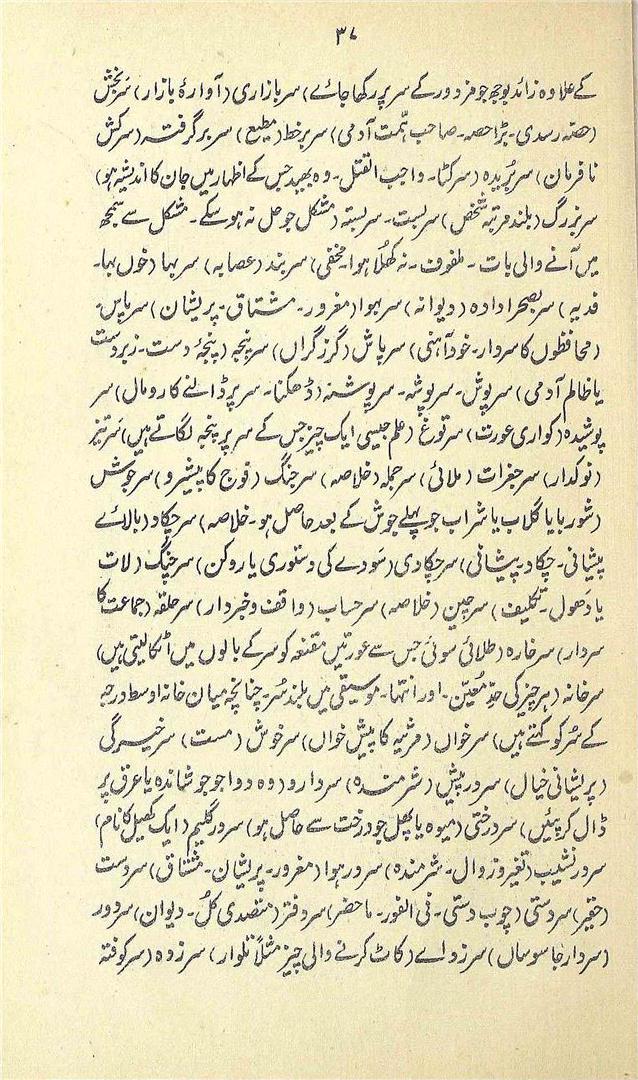 ۳۷
کے علاوہ زائد بوجھ جو مزدور کے سر پر رکھا جائے) سر بازاری (آوارۂ بازار) سَر بخش
(حصہ رسدی۔ بڑا حصہ۔ صاحب ہمّت آدمی) سر بر خط (مطیع) سر بر گرفتہ (سرکش
نافرمان) سر بُریدہ (سر کٹا۔ واجب القتل۔ وہ بھید جس کے اظہار میں جان کا اندیشہ ہو)
سر بزرگ (بلند مرتبہ شخص) سر بست۔ سر بستہ (مشکل جو حل نہ ہو سکے۔ مشکل سے سمجھ
میں آنے والی بات۔ ملفوف۔ نہ کھُلا ہوا۔ مخفی) سر بند (عصابہ) سر بہا (خوں بہا۔
فدیہ) سر بصحرا دادہ (دیوانہ) سر بہوا (مغرور۔ مشتاق۔ پریشان) سر پاس۔
(محافظوں کا سردار۔ خود آہنی) سر پاش (گرز گراں) سر پنجہ (پنجۂ دست۔ زبردست
یا ظالم آدمی) سر پوش۔ سر پوشہ۔ سر پوشنہ (ڈھکنا۔ سر پر ڈالنے کا رومال) سر
پوشیدہ (کواری عورت) سر توغ (علم جیسی ایک چیز جس کے سر پر پنجہ لگاتے ہیں) سَر تیز
(نوکدار) سر جغرات (ملائی) سر جملہ (خلاصہ) سر جنگ (فوج کا پیشرو) سر جوش
(شوربا یا گلاب یا شراب جو پہلے جوش کے بعد حاصل ہو۔ خلاصہ) سر چکاد (بالائے
پیشانی۔ چکاد۔ پیشانی) سر چکادی (سَودے کی دستوری یا روکن) سر چنگ (لات
یا دَھول۔ تکلیف) سر چین (خلاصہ) سر حساب (واقف و خبردار) سر حلقہ (جماعت کا
سردار) سر خارہ (طلائی سوئی جس سے عورتیں مقنعہ کو سر کے بالوں میں اٹکا لیتی ہیں)
سر خانہ (ہر چیز کی حدِّ معیّن۔ اور انتہا۔ موسیقی میں بلند سُر۔ چنانچہ میان خانہ اوسط درجہ
کے سُر کو کہتے ہیں) سر خواں (مرثیہ کا پیش خواں) سر خوش (مست) سر خیرگی
(پریشانی خیال) سر در پیش (شرمندہ) سر دارو (وہ دوا جو جوشاندہ یا عرق پر
ڈال کر پیئیں) سر درختی (میوہ یا پھل جو درخت سے حاصل ہو) سر در گلیم (ایک کھیل کا نام)
سر در نشیب (تغیر و زوال۔ شرمندہ) سر در ہوا (مغرور۔ پریشان۔ مشتاق) سر دست
(حقیر) سر دستی (چوب دستی۔ فی الفور۔ ماحضر) سر دفتر (متصدی کل۔ دیوان) سر دور
(سردار جاسوساں) سر زوائے (کاٹ کرنے والی چیز مثلاً تلوار) سر زدہ (سر کوفتہ